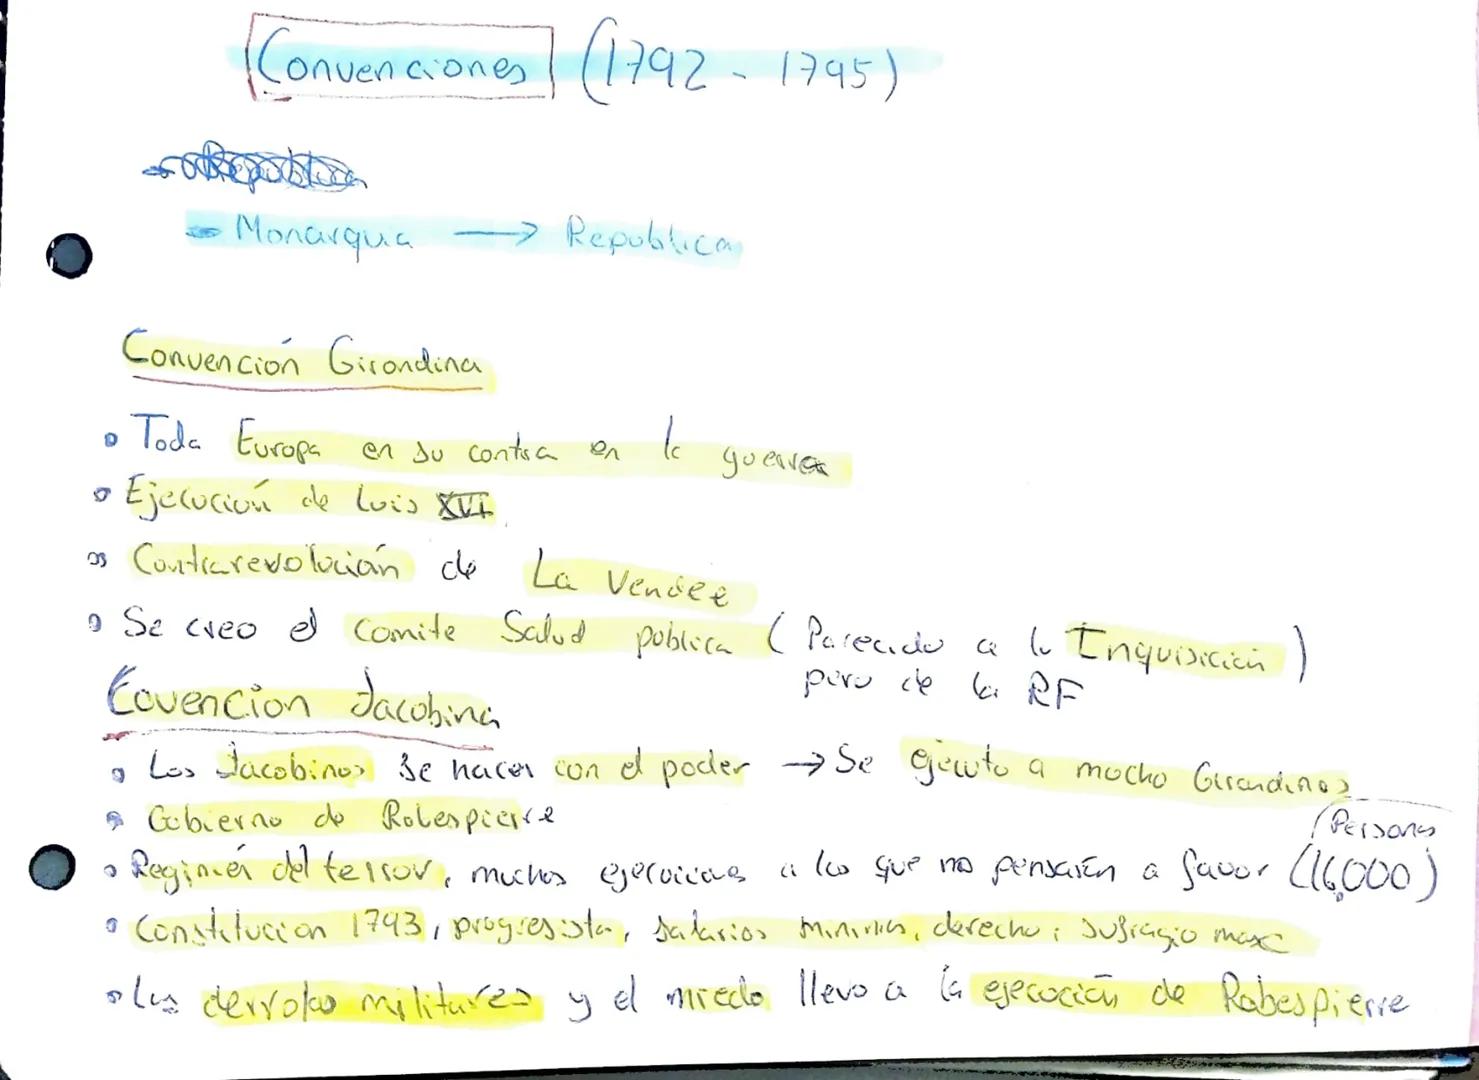 Convenciones (1792 - 1795)
Monarquia → Republica
Convención Girondina
Toda Europa en su contra en la guerra
Ejecución de Luis XVI
Contrarevolución de La Vendee
Se creo el Comite Salud publica (Parecido a la Inquisición)
pero de la RF
Covencion Jacobina
Los Jacobinos se hacen con el poder → Se ejecuto a mucho Girondinos
Gobierno de Robespierre
Personas
Regimen del terror, muchas ejecuciones a los que no pensaran a favor (16,000)
Constitucion 1793, progresista, salarios minimos, derecho, sufragio masc
Las derrotas militares y el miedo llevo a la ejecución de Robespierre